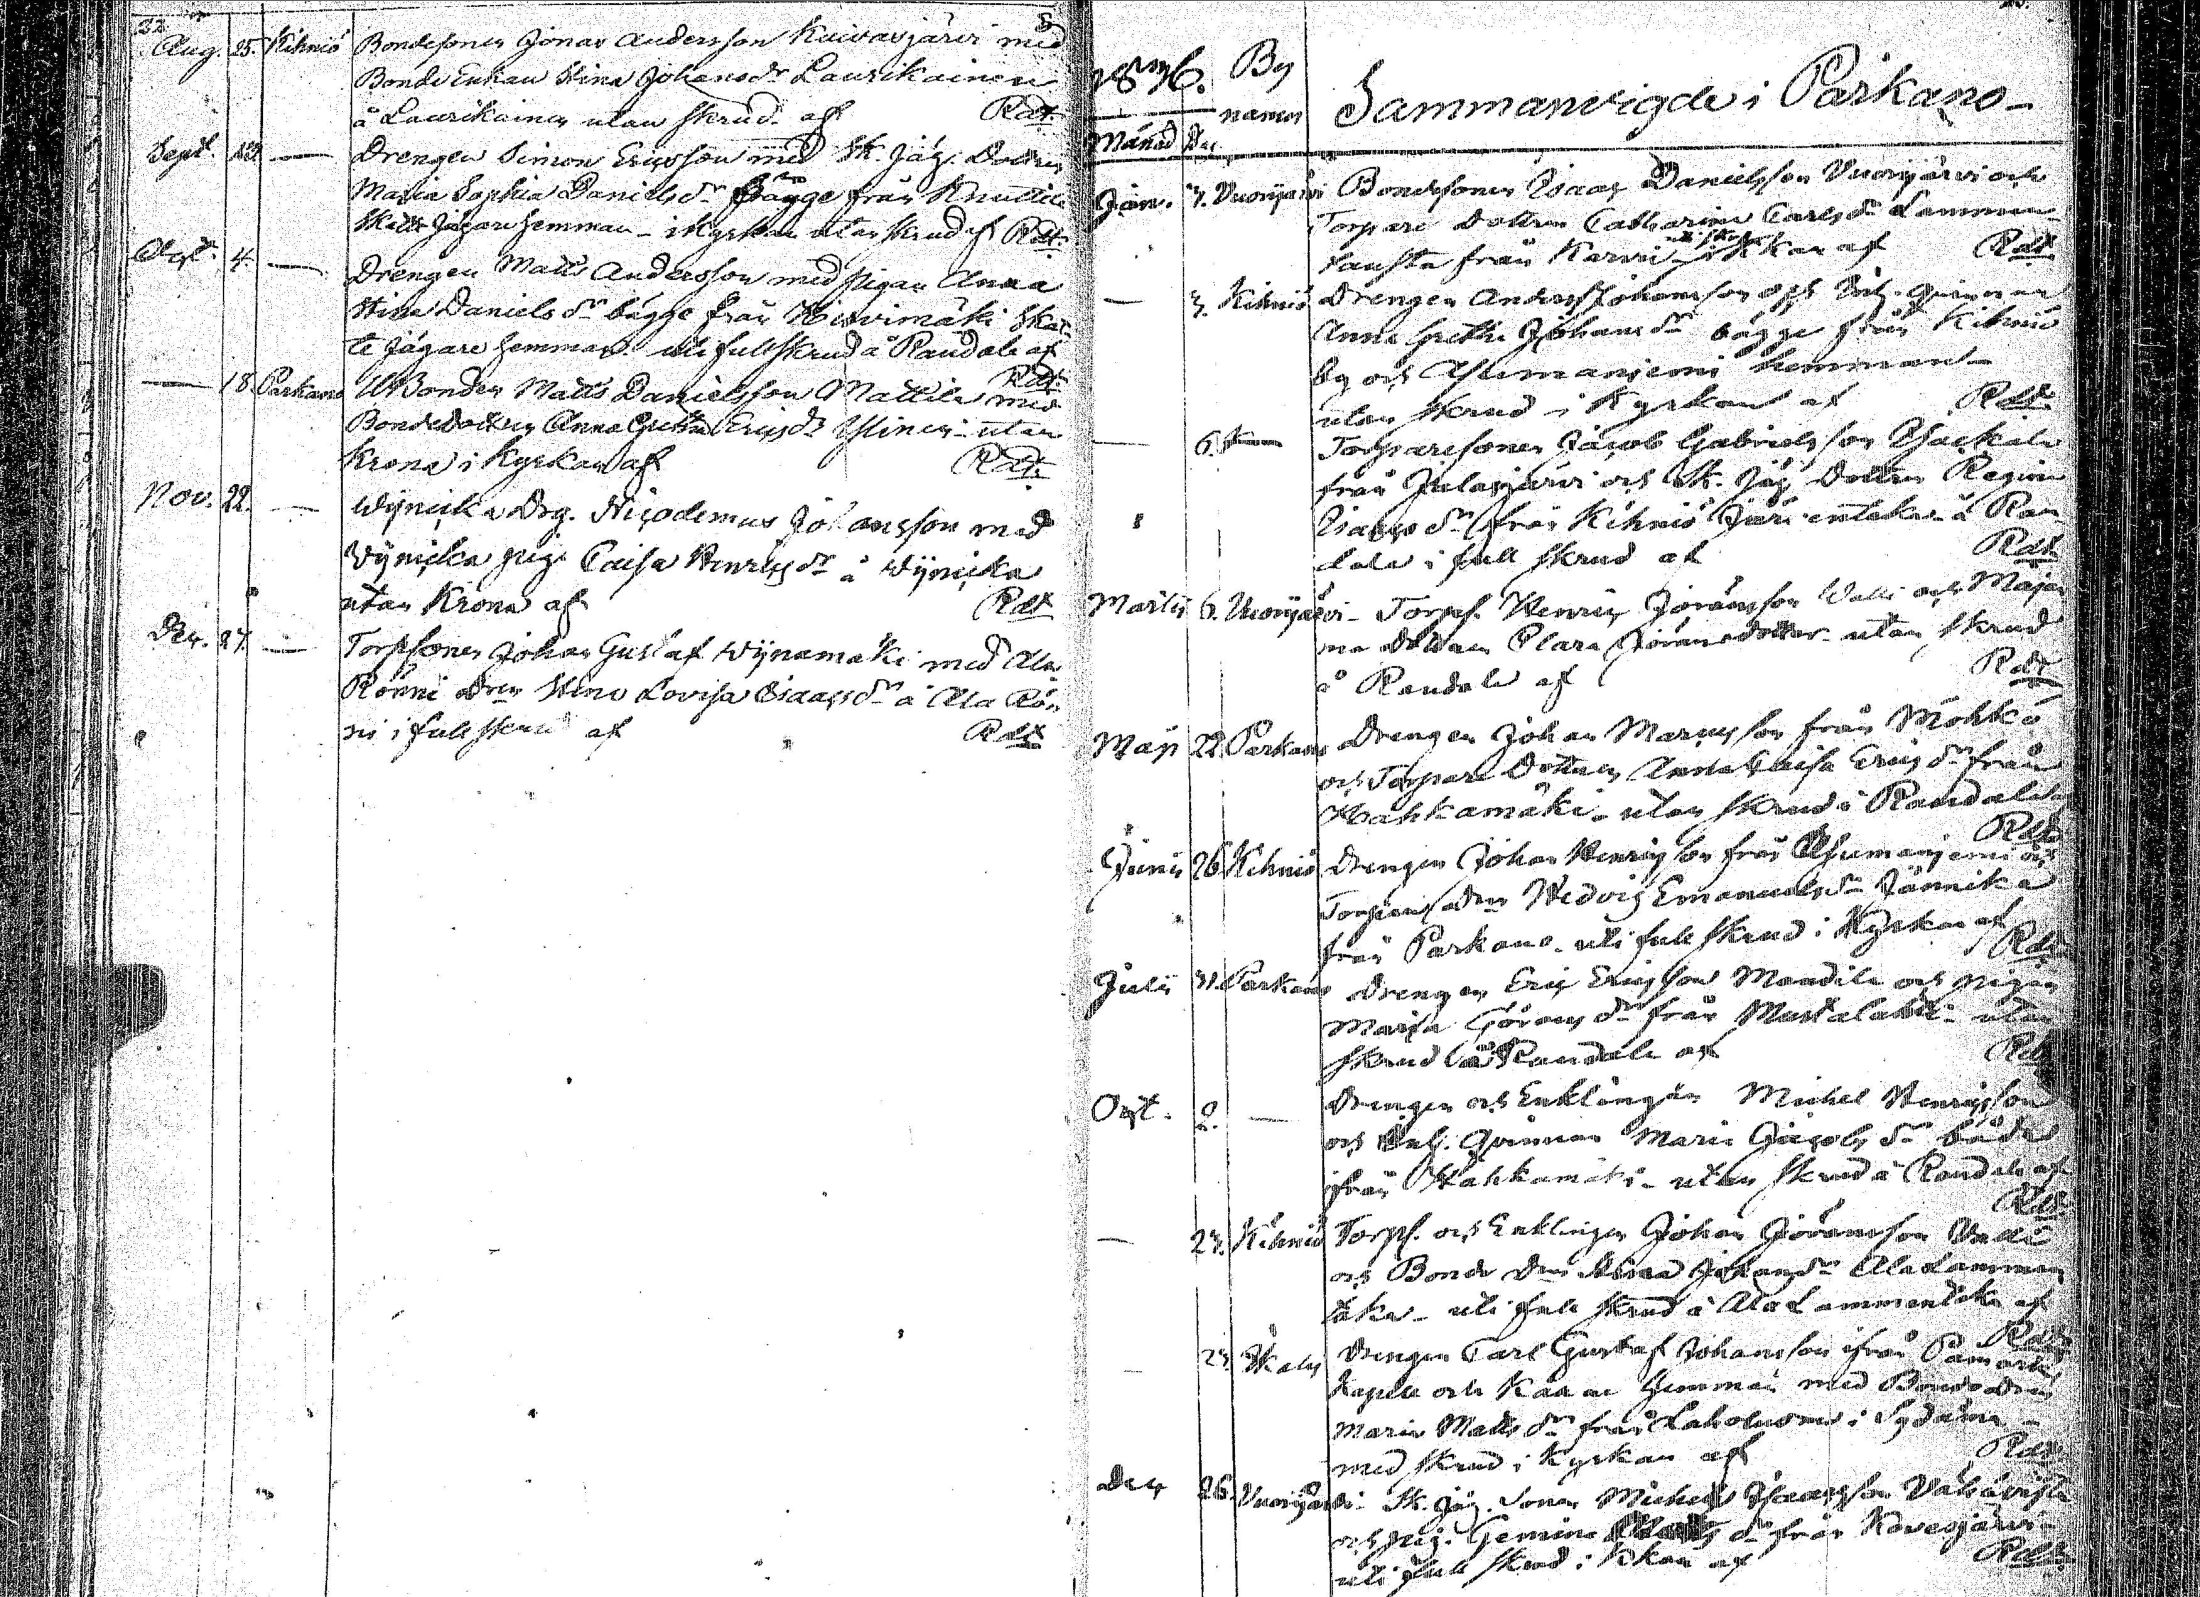 22
Aug. 25. Kihniö Bondesonen Jonas Andersson Kuivasjärvi med
Bonde Enkan Stina Johansdr Laurikainen
å Laurikainen utan skrud af Rdt
Sept. 23. — Drengen Simon Ericsson med Sk. Jäg. Dottren
Maria Sophia Danielsdr bägge från Knuttila
Skatte Jägare hemman - i Kyrkan utan skrud af Rdt
Oct. 4. — Drengen Matts Andersson med pigan Anna
Stina Daniels dr bägge från Hirvimäki Skat-
te Jägare hemman uti full skrud å Raudala af
Rdt
— 18 Parkano Bonden Matts Danielsson Mattila med
Bonde Dottren Anna Greta Ericsdr Yliner - utan
Krona i Kyrkan af Rdt
Nov. 22. — Wijneicka Drg. Nicodemus Johansson med
Wijneicka pig. Caisa Henricsdr å Wijneicka
utan Krona af Rdt
Dec. 27. — Torpsonen Johan Gustaf Wijnamäki med Ala
Rönni drn Stina Lovisa Isaacsdr å Ala Rön-
ni i full skrud af Rdt
1836. By namn
Månad Dag
Sammanvigde i Parkano
Jan. 3. Vuorijärvi Bondesonen Isaac Danielsson Vuorijärvi och
Torpare Dottren Catharina Carlsdr Lammin
tausta från Karvi i Kkan af Rdt
— 3. Kihniö Drengen Anders Johansson och Inh. qvinnan
Anna Greta Johansdr bägge från Kihniö
by och hemman
utan skrud i Kyrkan af Rdt
— 6. — Torparesonen Jacob Gabrielsson
från Jalasjärvi och Sk. Jäg Dottren Regina
Isaacsdr från Kihniö å Rau-
dala i full skrud af Rdt
Martii 6. Vuorijärvi - Torps. Henric Jöransson Walli och
Dottren Clara Jöransdotter - utan skrud
å Raudala af Rdt
Maji 22. Parkano Drengen Johan Marcusson från
och Torpare Dottren Anna Caisa Ericsdr från
Kahkamäki - utan skrud å Raudala
Rdt
Junii 26. Kihniö Drengen Johan Henricsson från och
Torpare drn Hedvig Emanuelsdr Jännikä
från Parkano - uti full skrud i Kyrkan af
Rdt
Julii 31. Parkano Drengen Eric Ericsson Mandila och pigan
Maria Göransdr från Mustalahti - utan
skrud å Raudala af Rdt
Oct. 2. — Drengen och Enklingen Michel Henricsson
och Inh. qvinnan Maria Jacobsdr både
ifrån Kahkamäki - utan skrud å Raudala af
Rdt
— 23. Kihniö Torps. och Enklingen Johan Jöransson Valli
och Bonde drn Stina Johansdr Ala Lammin
täka - uti full skrud å Ala Lammintäka af
Rdt
— 23 Drengen Carl Gustaf Johansson ifrån
Kapell och hemman med Bonde drn
Maria Mattsdr från Laholuoma i
med skrud i Kyrkan af Rdt
Dec 26. Vuorijärvi - Sk. Jäg. Sonen Michel Isaacsson
och pig. Gemina dr från Kovesjärvi -
uti full skrud i Kkan af Rdt